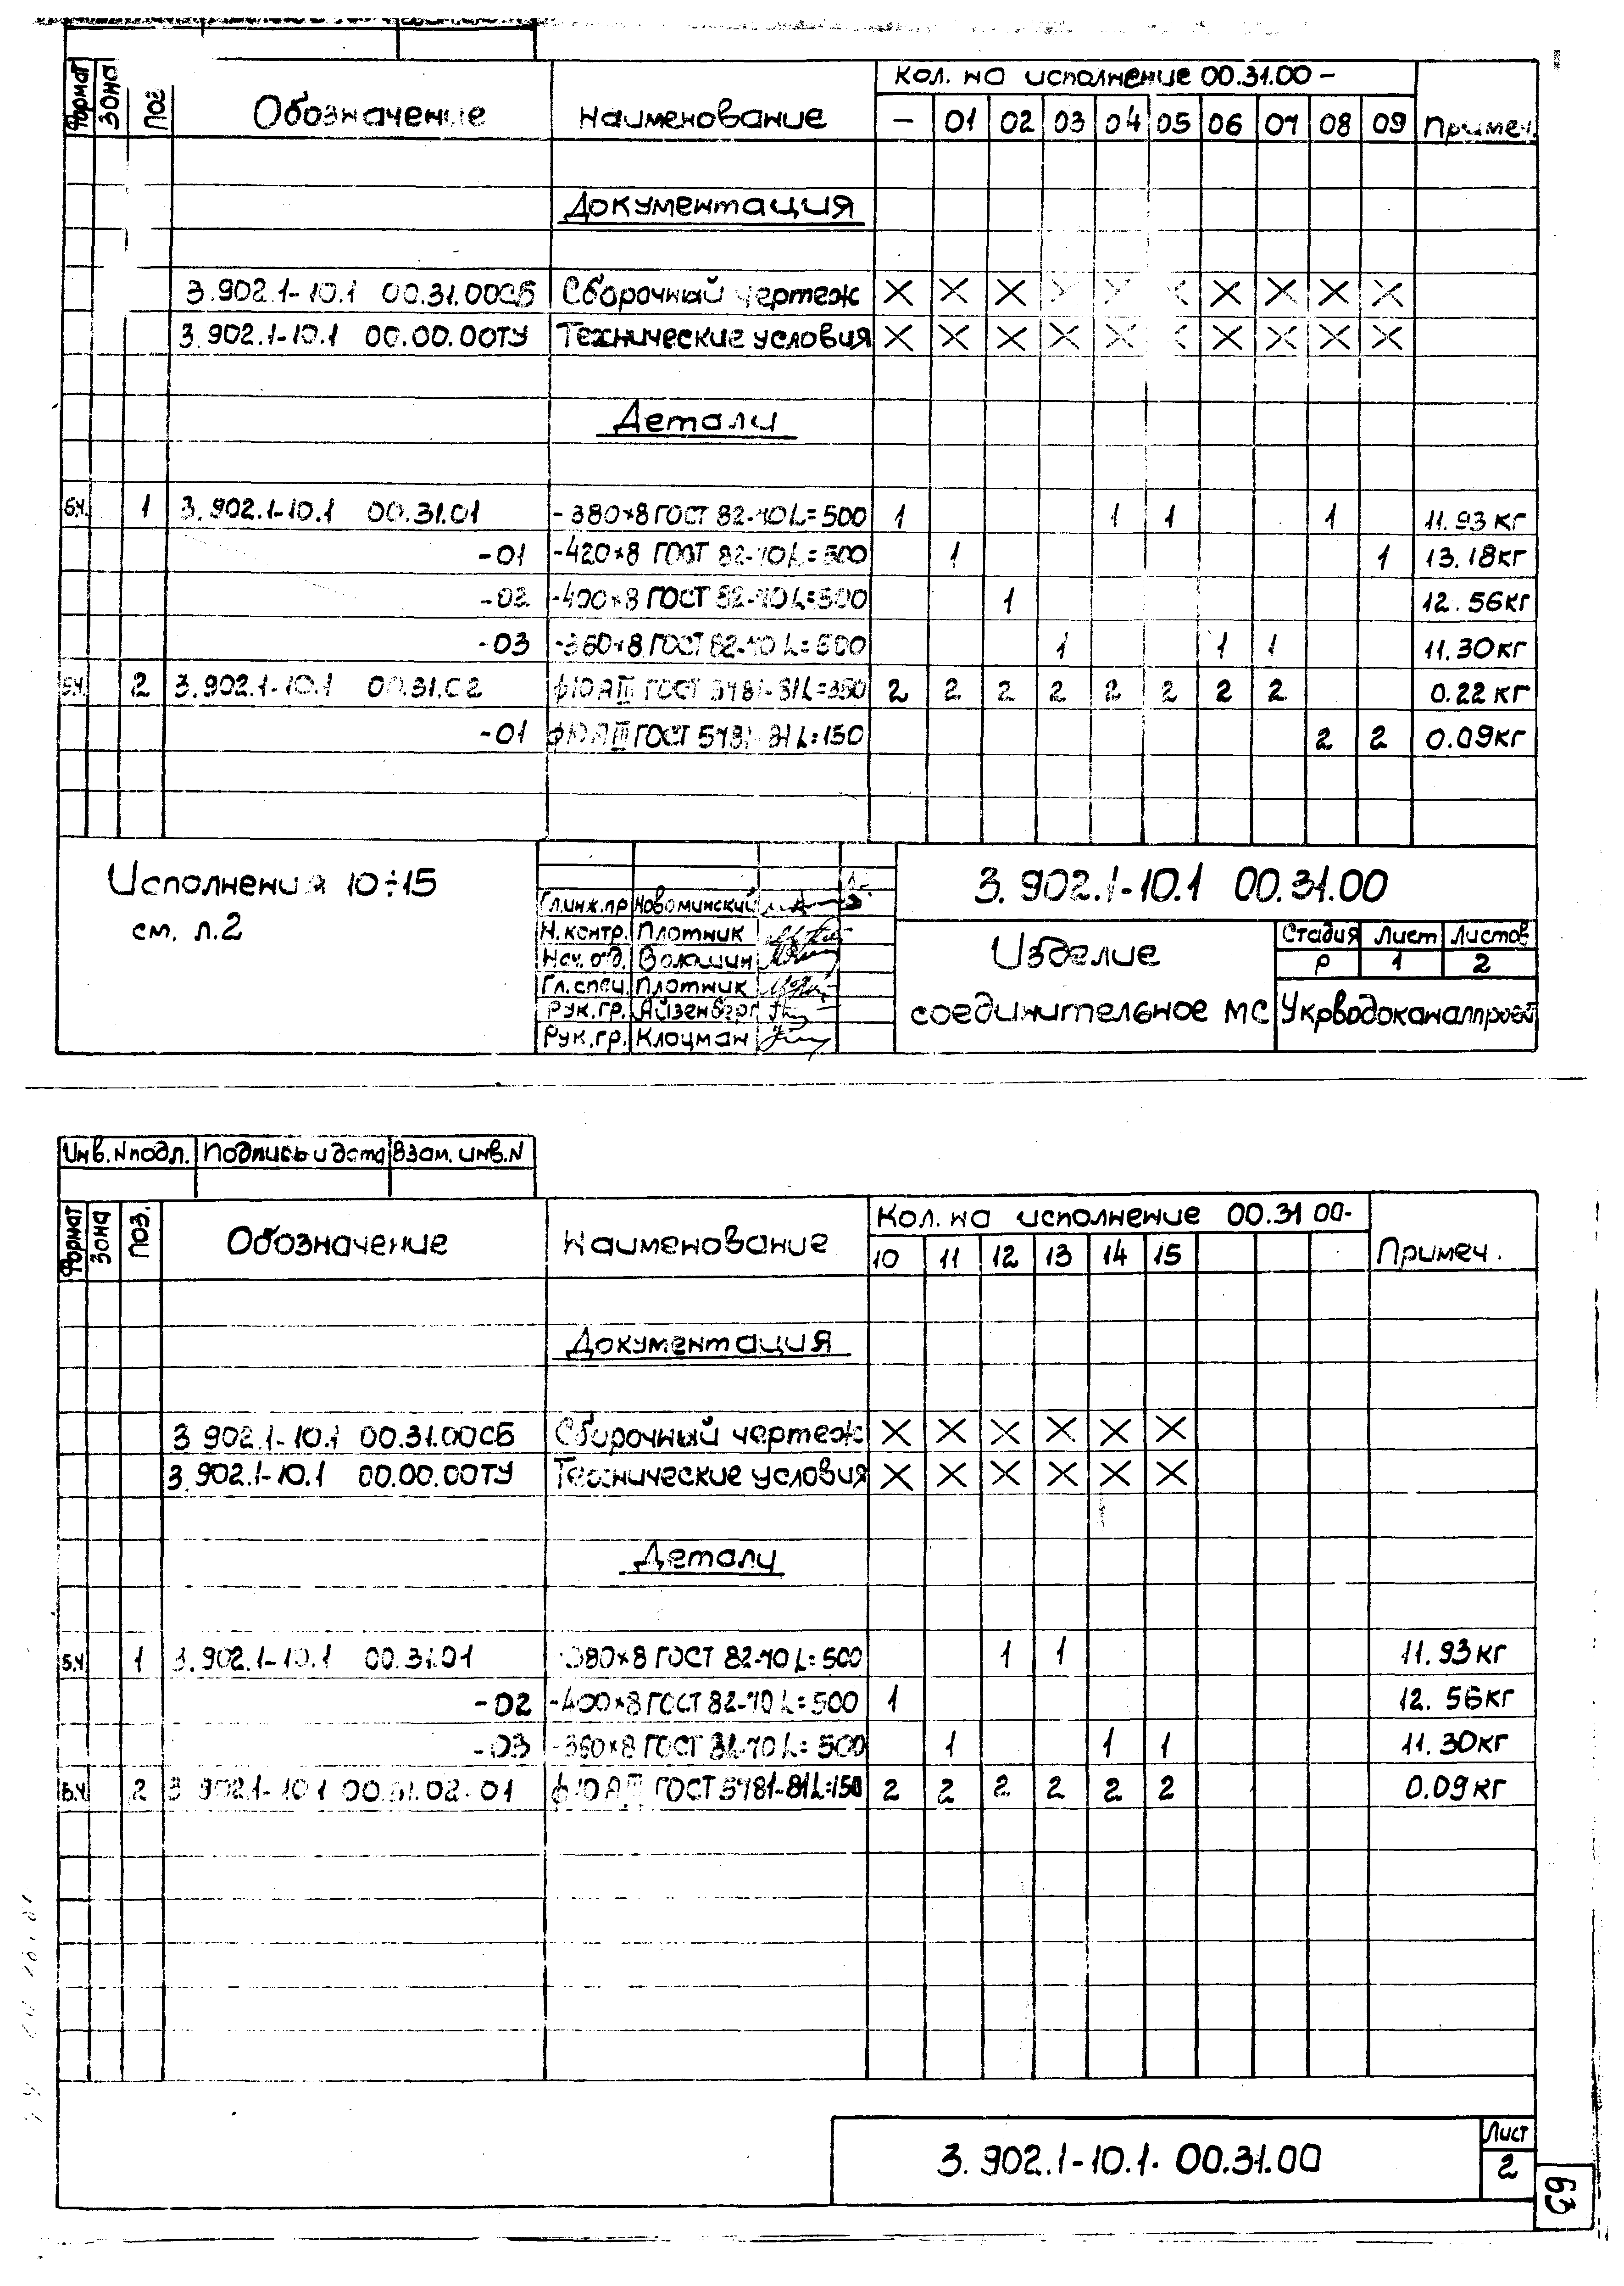 Формат Зона Поз Обозначение Наименование Кол. на исполнение 00.31.00 – Примеч.
– 01 02 03 04 05 06 07 08 09
Документация
3.902.1-10.1 00.31.00СБ Сборочный чертеж X X X X X X X X X X
3.902.1-10.1 00.00.00ТУ Технические условия X X X X X X X X X X
Детали
Б.Ч. 1 3.902.1-10.1 00.31.01 -380×8 ГОСТ 82-70 L=500 1 1 1 1 11.93 кг
-01 -420×8 ГОСТ 82-70 L=500 1 1 13.18кг
-02 -400×8 ГОСТ 82-70 L=500 1 12.56кг
-03 -360×8 ГОСТ 82-70 L=500 1 1 1 11.30кг
Б.Ч. 2 3.902.1-10.1 00.31.02 ϕ10 АIII ГОСТ 5781-81 L=350 2 2 2 2 2 2 2 2 0.22 кг
-01 ϕ10 АIII ГОСТ 5781-81 L=150 2 2 0.09кг
Исполнения 10÷15
см. л.2
Гл.инж.пр Новоминский
Н.контр. Плотник
Нач. отд. Волошин
Гл. спец. Плотник
Рук.гр. Айзенберг
Рук.гр. Клоцман
3.902.1-10.1 00.31.00
Изделие
соединительное МС
Стадия Лист Листов
Р 1 2
Укрводоканалпроект
Инв. N подл. Подпись и дата Взам. инв. N
Формат Зона Поз. Обозначение Наименование Кол. на исполнение 00.31 00- Примеч.
10 11 12 13 14 15
Документация
3 902.1-10.1 00.31.00СБ Сборочный чертеж X X X X X X
3.902.1-10.1 00.00.00ТУ Технические условия X X X X X X
Детали
Б.Ч 1 3.902.1-10.1 00.31.01 -380×8 ГОСТ 82-70 L=500 1 1 11.93кг
-02 -400×8 ГОСТ 82-70 L=500 1 12.56кг
-03 -360×8 ГОСТ 82-70 L=500 1 1 1 11.30кг
Б.Ч 2 3 902.1-10.1 00.31.02-01 ϕ10 АIII ГОСТ 5781-81 L=150 2 2 2 2 2 2 0.09кг
3.902.1-10.1. 00.31.00
Лист
2
63